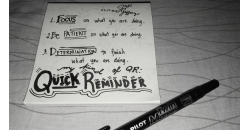 1. FOCUS on what you are doing.
2. Be PATIENT on what you are doing.
3. DETERMINATION to finish
what you are doing.
my kind of
QUICK REMINDER
PILOT